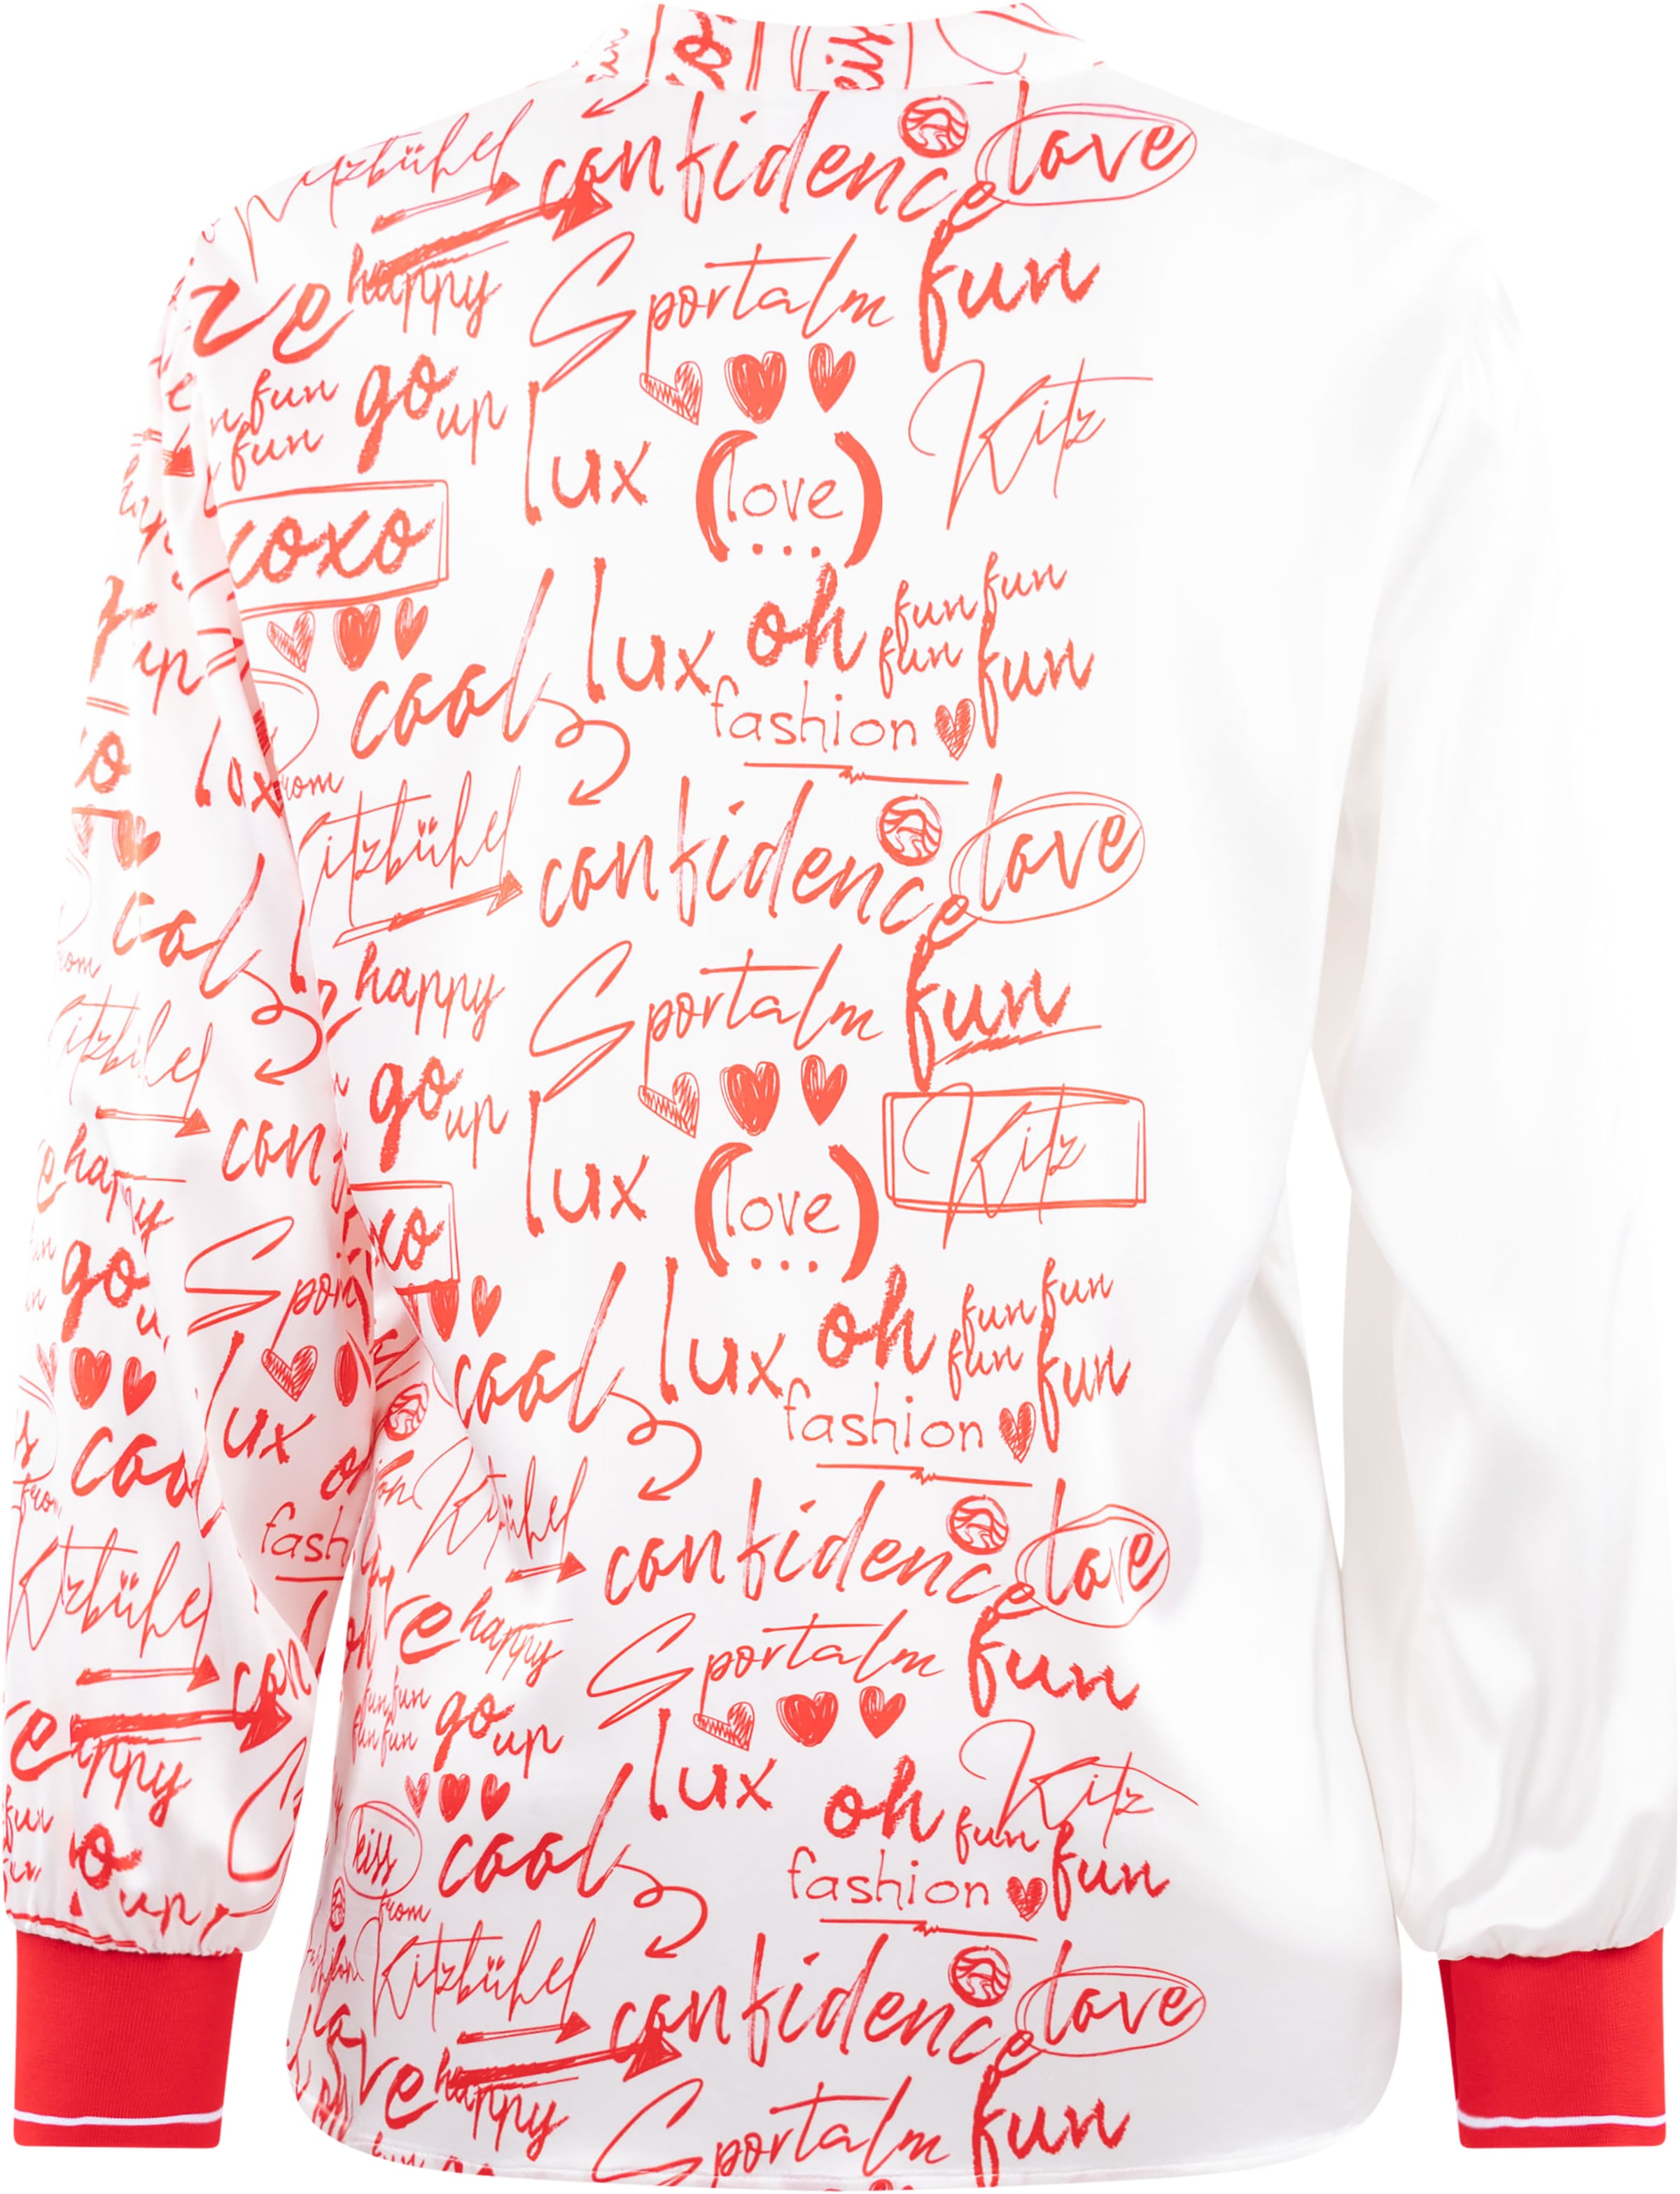 Kitzbühel confidence love
happy Sportalm fun
fun go up
fun lux (love) Kitz
xoxo
up cool lux oh fun fun
fun fun
lux from fashion
Kitzbühel confidence love
cool happy Sportalm fun
from
Kitzbühel go up
lux (love) Kitz
happy xo
go cool lux oh fun fun
fun fun
lux fashion
cool Kitzbühel confidence love
from
fash happy Sportalm fun
Kitzbühel fun fun go up
fun fun lux Kitz
happy oh fun fun
kiss cool fashion
fun from
up Kitzbühel confidence love
happy Sportalm fun